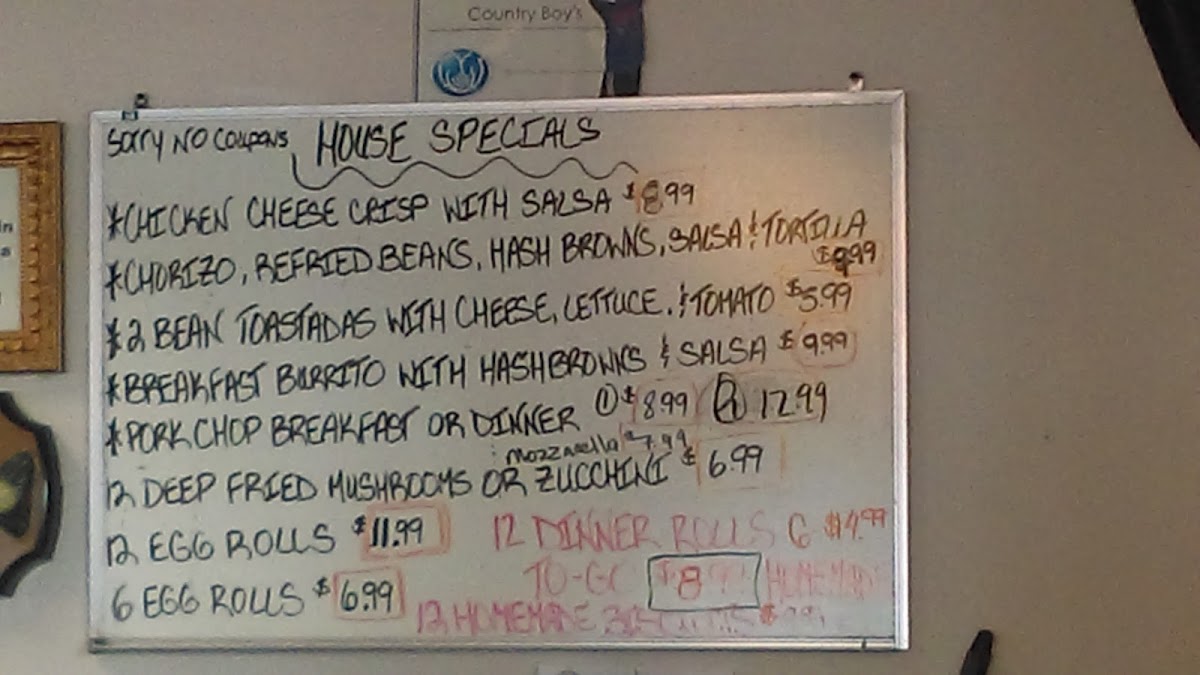 Country Boy's
Sorry No Coupons HOUSE SPECIALS
*CHICKEN CHEESE CRISP WITH SALSA $8.99
*CHORIZO, REFRIED BEANS, HASH BROWNS, SALSA & TORTILLA
$9.99
*2 BEAN TOASTADAS WITH CHEESE, LETTUCE. & TOMATO $5.99
*BREAKFAST BURRITO WITH HASHBROWNS & SALSA $9.99
*PORK CHOP BREAKFAST OR DINNER ① $8.99 ② 12.99
mozzarella $7.99
12 DEEP FRIED MUSHROOMS OR ZUCCHINI $6.99
12 EGG ROLLS $11.99
12 DINNER ROLLS 6 $4.99
TO-GO $8.99 HOMEMADE
6 EGG ROLLS $6.99
12 HOMEMADE BISCUITS
in
a